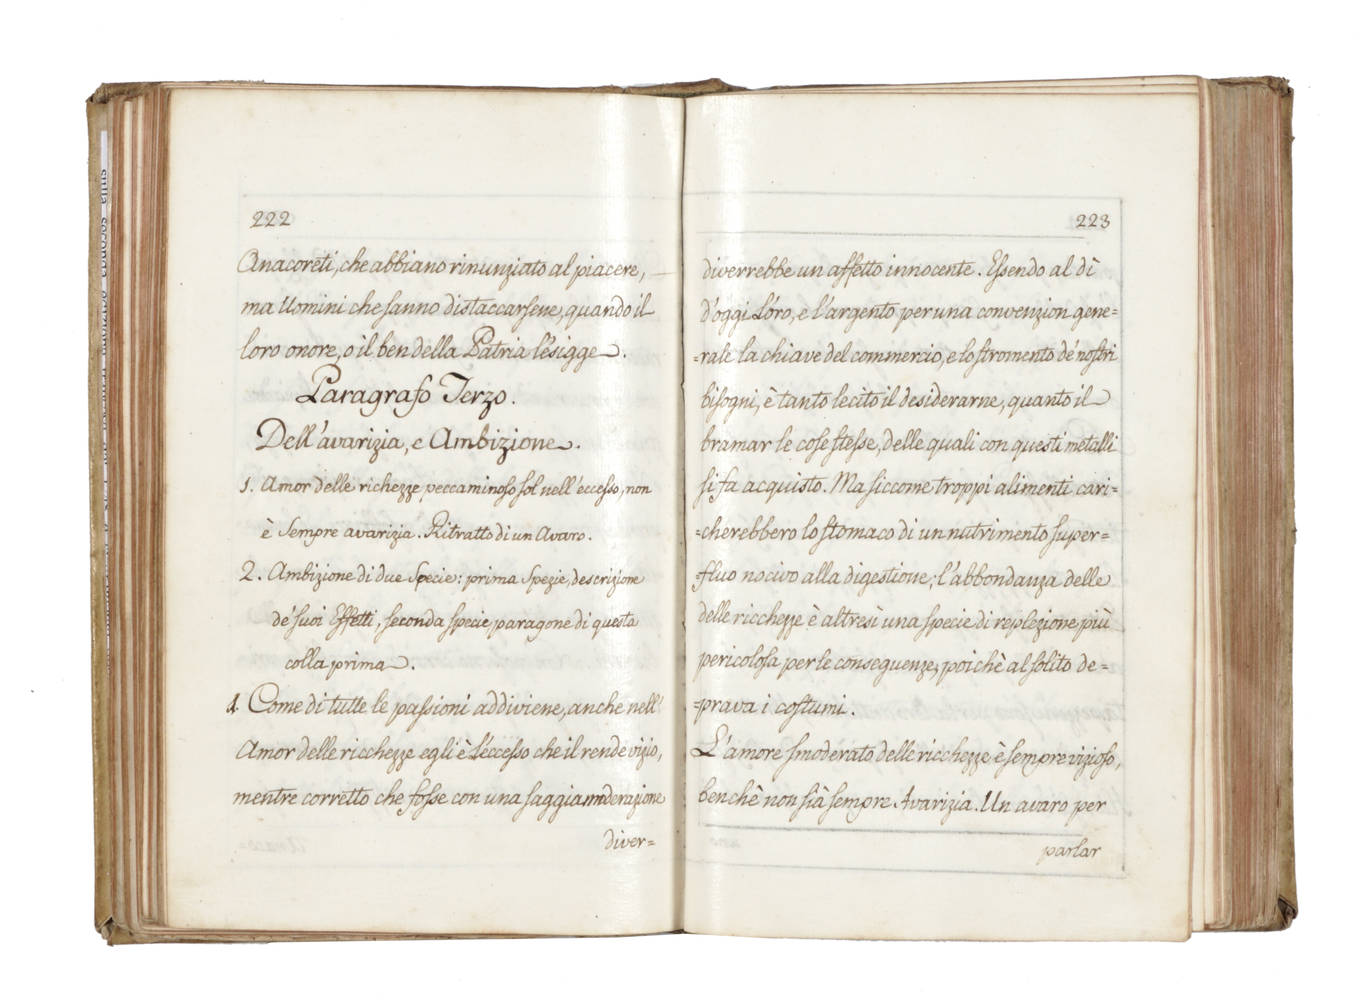 222
Anacoreti, che abbiano rinunziato al piacere,
ma Uomini che sanno distaccarsene, quando il
loro onore, o il ben della Patria l'esigge.
Paragrafo Terzo.
Dell'avarizia, e Ambizione.
1. Amor delle richezze peccaminoso sol nell'eccesso, non
è sempre avarizia. Ritratto di un Avaro.
2. Ambizione di due Specie: prima Spezie, descrizione
de' suoi Effetti, seconda specie paragone di questa
colla prima.
1. Come di tutte le passioni addiviene, anche nell'
Amor delle ricchezze egli è l'eccesso che il rende vizio,
mentre corretto che fosse con una saggia moderazione
diver=
223
diverrebbe un affetto innocente. Essendo al dì
d'oggi L'oro, e l'argento per una convenzion gene=
=rale la chiave del commercio, e lo stromento de' nostri
bisogni, è tanto lecito il desiderarne, quanto il
bramar le cose stesse, delle quali con questi metalli
si fa acquisto. Ma siccome troppi alimenti cari=
=cherebbero lo stomaco di un nutrimento super=
=fluo nocivo alla digestione; l'abbondanza delle
delle ricchezze è altresì una specie di replezione più
pericolosa per le conseguenze, poichè al solito de=
=prava i costumi.
L'amore smoderato delle ricchezze è sempre vizioso,
benchè non sià sempre Avarizia. Un avaro per
parlar